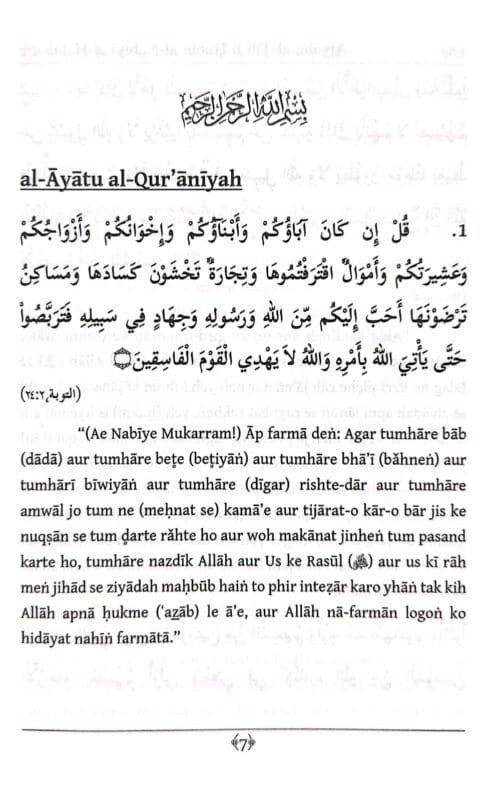 بِسْمِ اللهِ الرَّحْمٰنِ الرَّحِيْمِ
al-Āyatu al-Qur’ānīyah
1. قُلْ إِن كَانَ آبَاؤُكُمْ وَأَبْنَآؤُكُمْ وَإِخْوَانُكُمْ وَأَزْوَاجُكُمْ
وَعَشِيرَتُكُمْ وَأَمْوَالٌ اقْتَرَفْتُمُوهَا وَتِجَارَةٌ تَخْشَوْنَ كَسَادَهَا وَمَسَاكِنُ
تَرْضَوْنَهَا أَحَبَّ إِلَيْكُم مِّنَ اللهِ وَرَسُولِهِ وَجِهَادٍ فِي سَبِيلِهِ فَتَرَبَّصُواْ
حَتَّى يَأْتِيَ اللهُ بِأَمْرِهِ وَاللهُ لاَ يَهْدِي الْقَوْمَ الْفَاسِقِينَ۝
(التوبة،٢:٦٤)
“(Ae Nabīye Mukarram!) Āp farmā deṅ: Agar tumhāre bāb
(dādā) aur tumhāre beṭe (beṭiyāṅ) aur tumhāre bhā’ī (bǎhneṅ) aur
tumhārī bīwiyāṅ aur tumhāre (dīgar) rishte-dār aur tumhāre
amwāl jo tum ne (meḥnat se) kamā’e aur tijārat-o kār-o bār jis ke
nuqṣān se tum ḍarte rǎhte ho aur woh makānat jinheṅ tum pasand
karte ho, tumhāre nazdīk Allāh aur Us ke Rasūl (ﷺ) aur us kī rāh
meṅ jihād se ziyādah maḥbūb haiṅ to phir inteẓār karo yhāṅ tak kih
Allāh apnā ḥukme (‘aẕāb) le ā’e, aur Allāh nā-farmān logoṅ ko
hidāyat nahīṅ farmātā.”
﴾7﴿